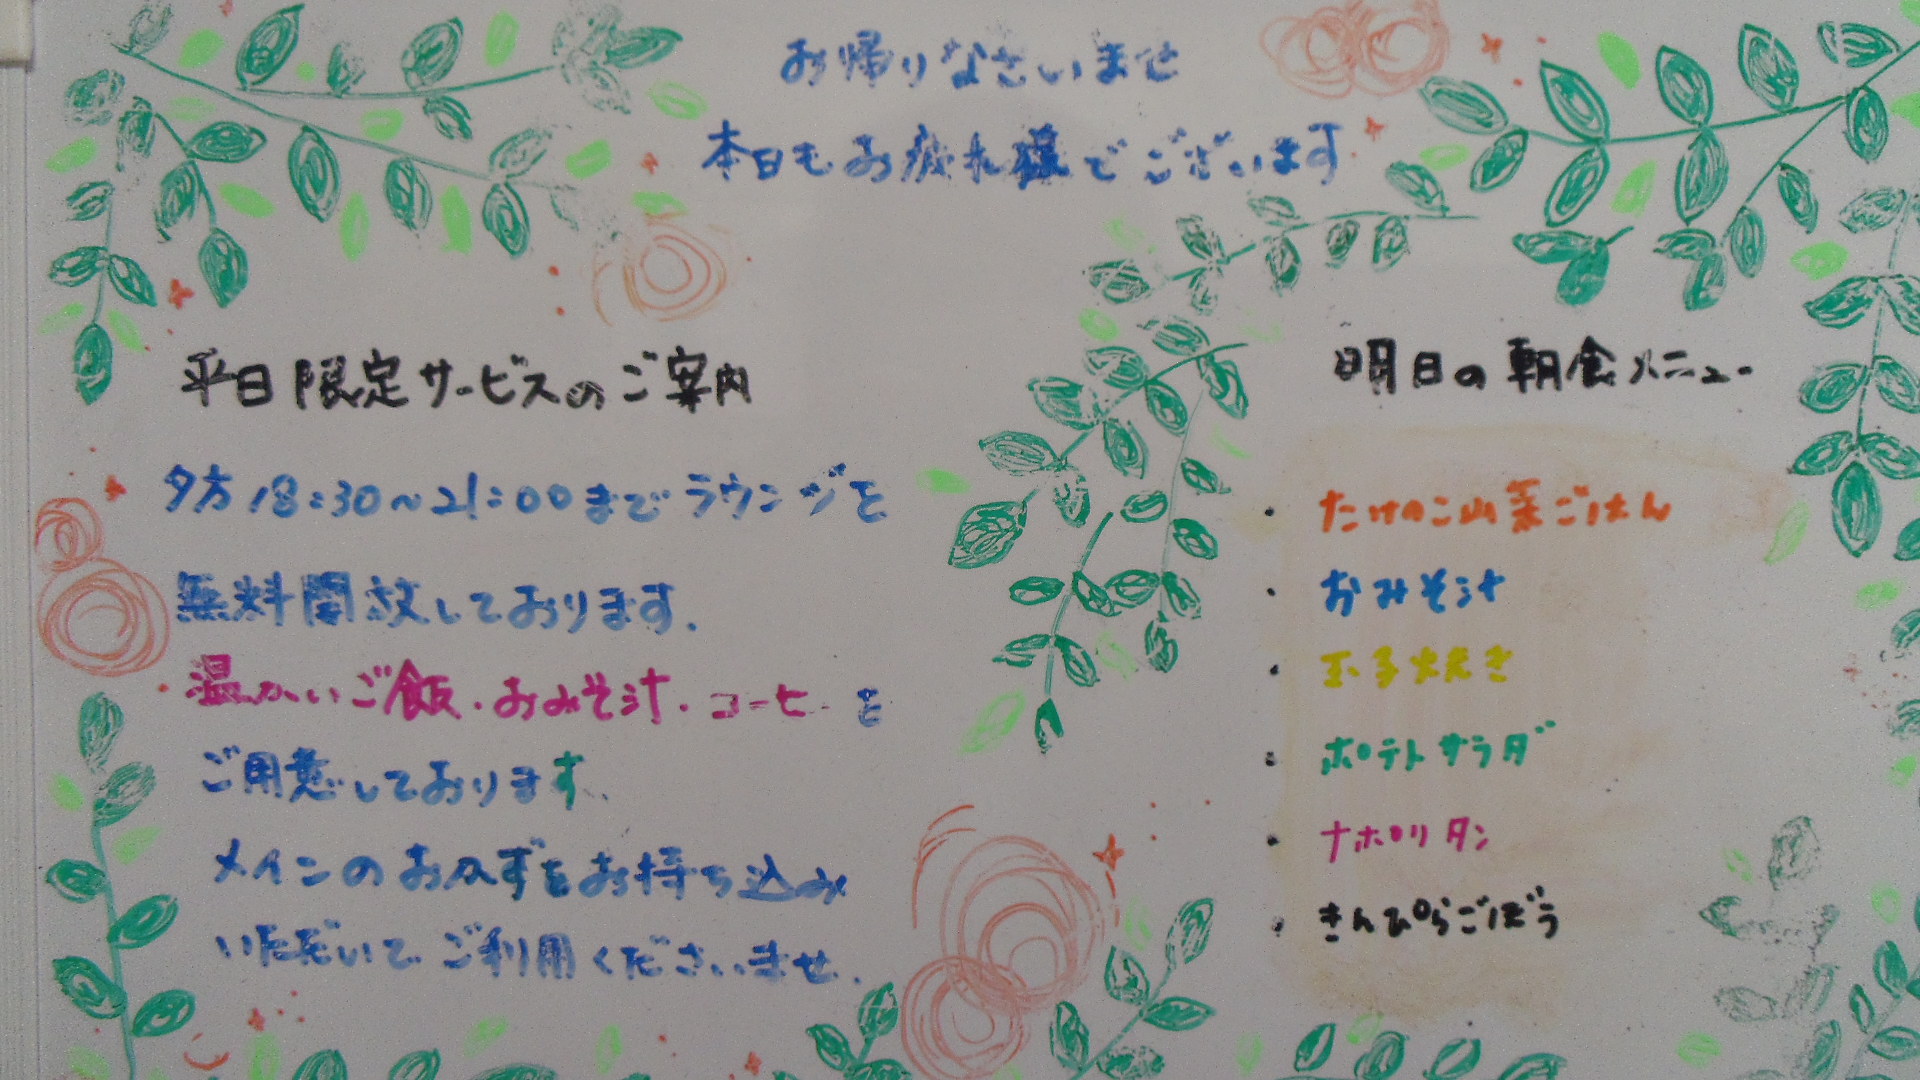 お帰りなさいませ
本日もお疲れ様でございます
平日限定サービスのご案内
夕方18:30~21:00までラウンジを
無料開放しております.
温かいご飯・おみそ汁・コーヒーを
ご用意しております.
メインのおかずをお持ち込み
いただいてご利用くださいませ.
明日の朝食メニュー
・たけのこ山菜ごはん
・おみそ汁
・玉子焼き
・ポテトサラダ
・ナポリタン
・きんぴらごぼう